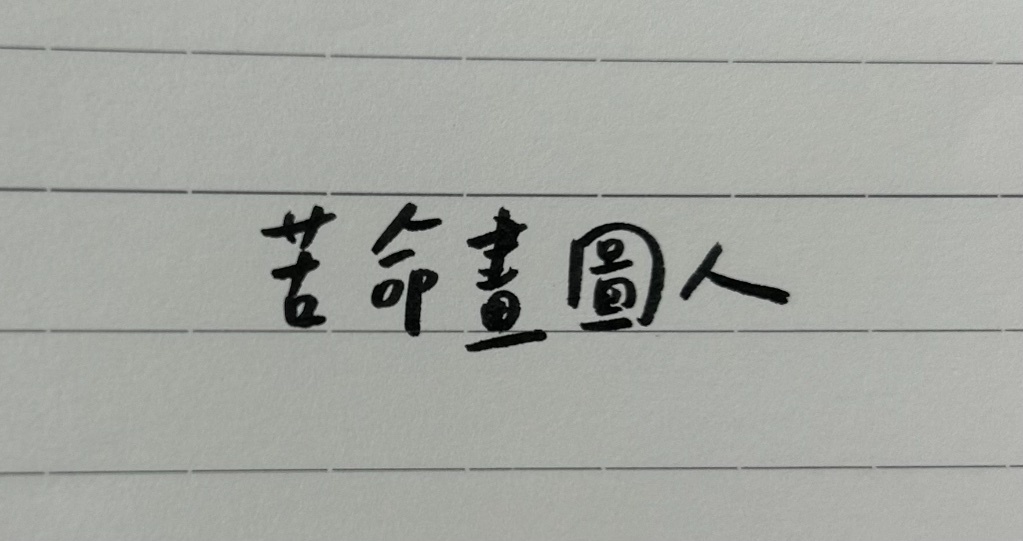 苦命畫圖人